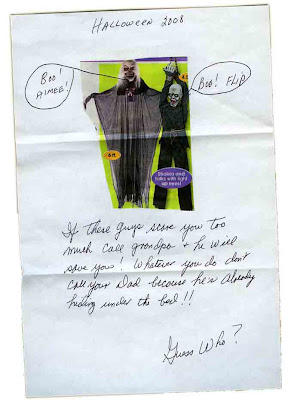 HALLOWEEN 2008
BOO! AIMEE!
BOO! FLIP
6 ft.
Shakes and
talks with light
up eyes!
If these guys scare you too
much call grandpa & he will
save you! Whatever you do don't
call your Dad because he's already
hiding under the bed!!
Guess Who?